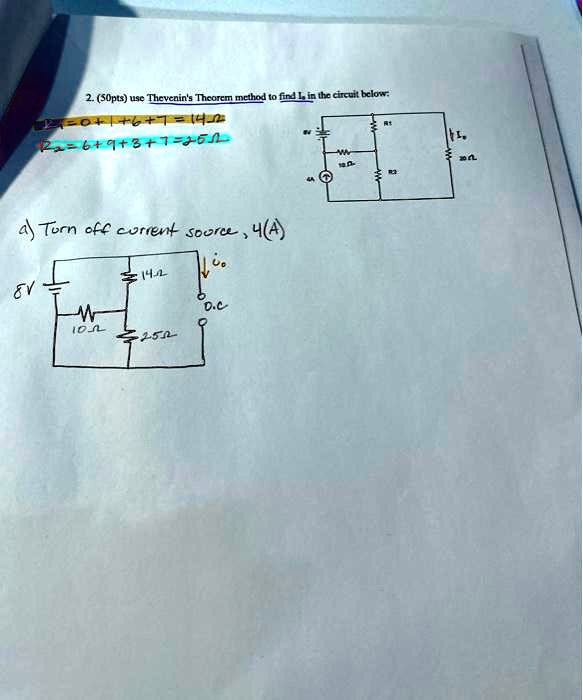 2. (50pts) use Thevenin's Theorem method to find Io in the circuit below:
R1=0+1+6+7=14Ω
R2=6+9+3+7=25Ω
8V
R1
Io
10Ω
20Ω
4A
R2
a) Turn off current source, 4(A)
8V
14Ω
io
O.C
10Ω
25Ω